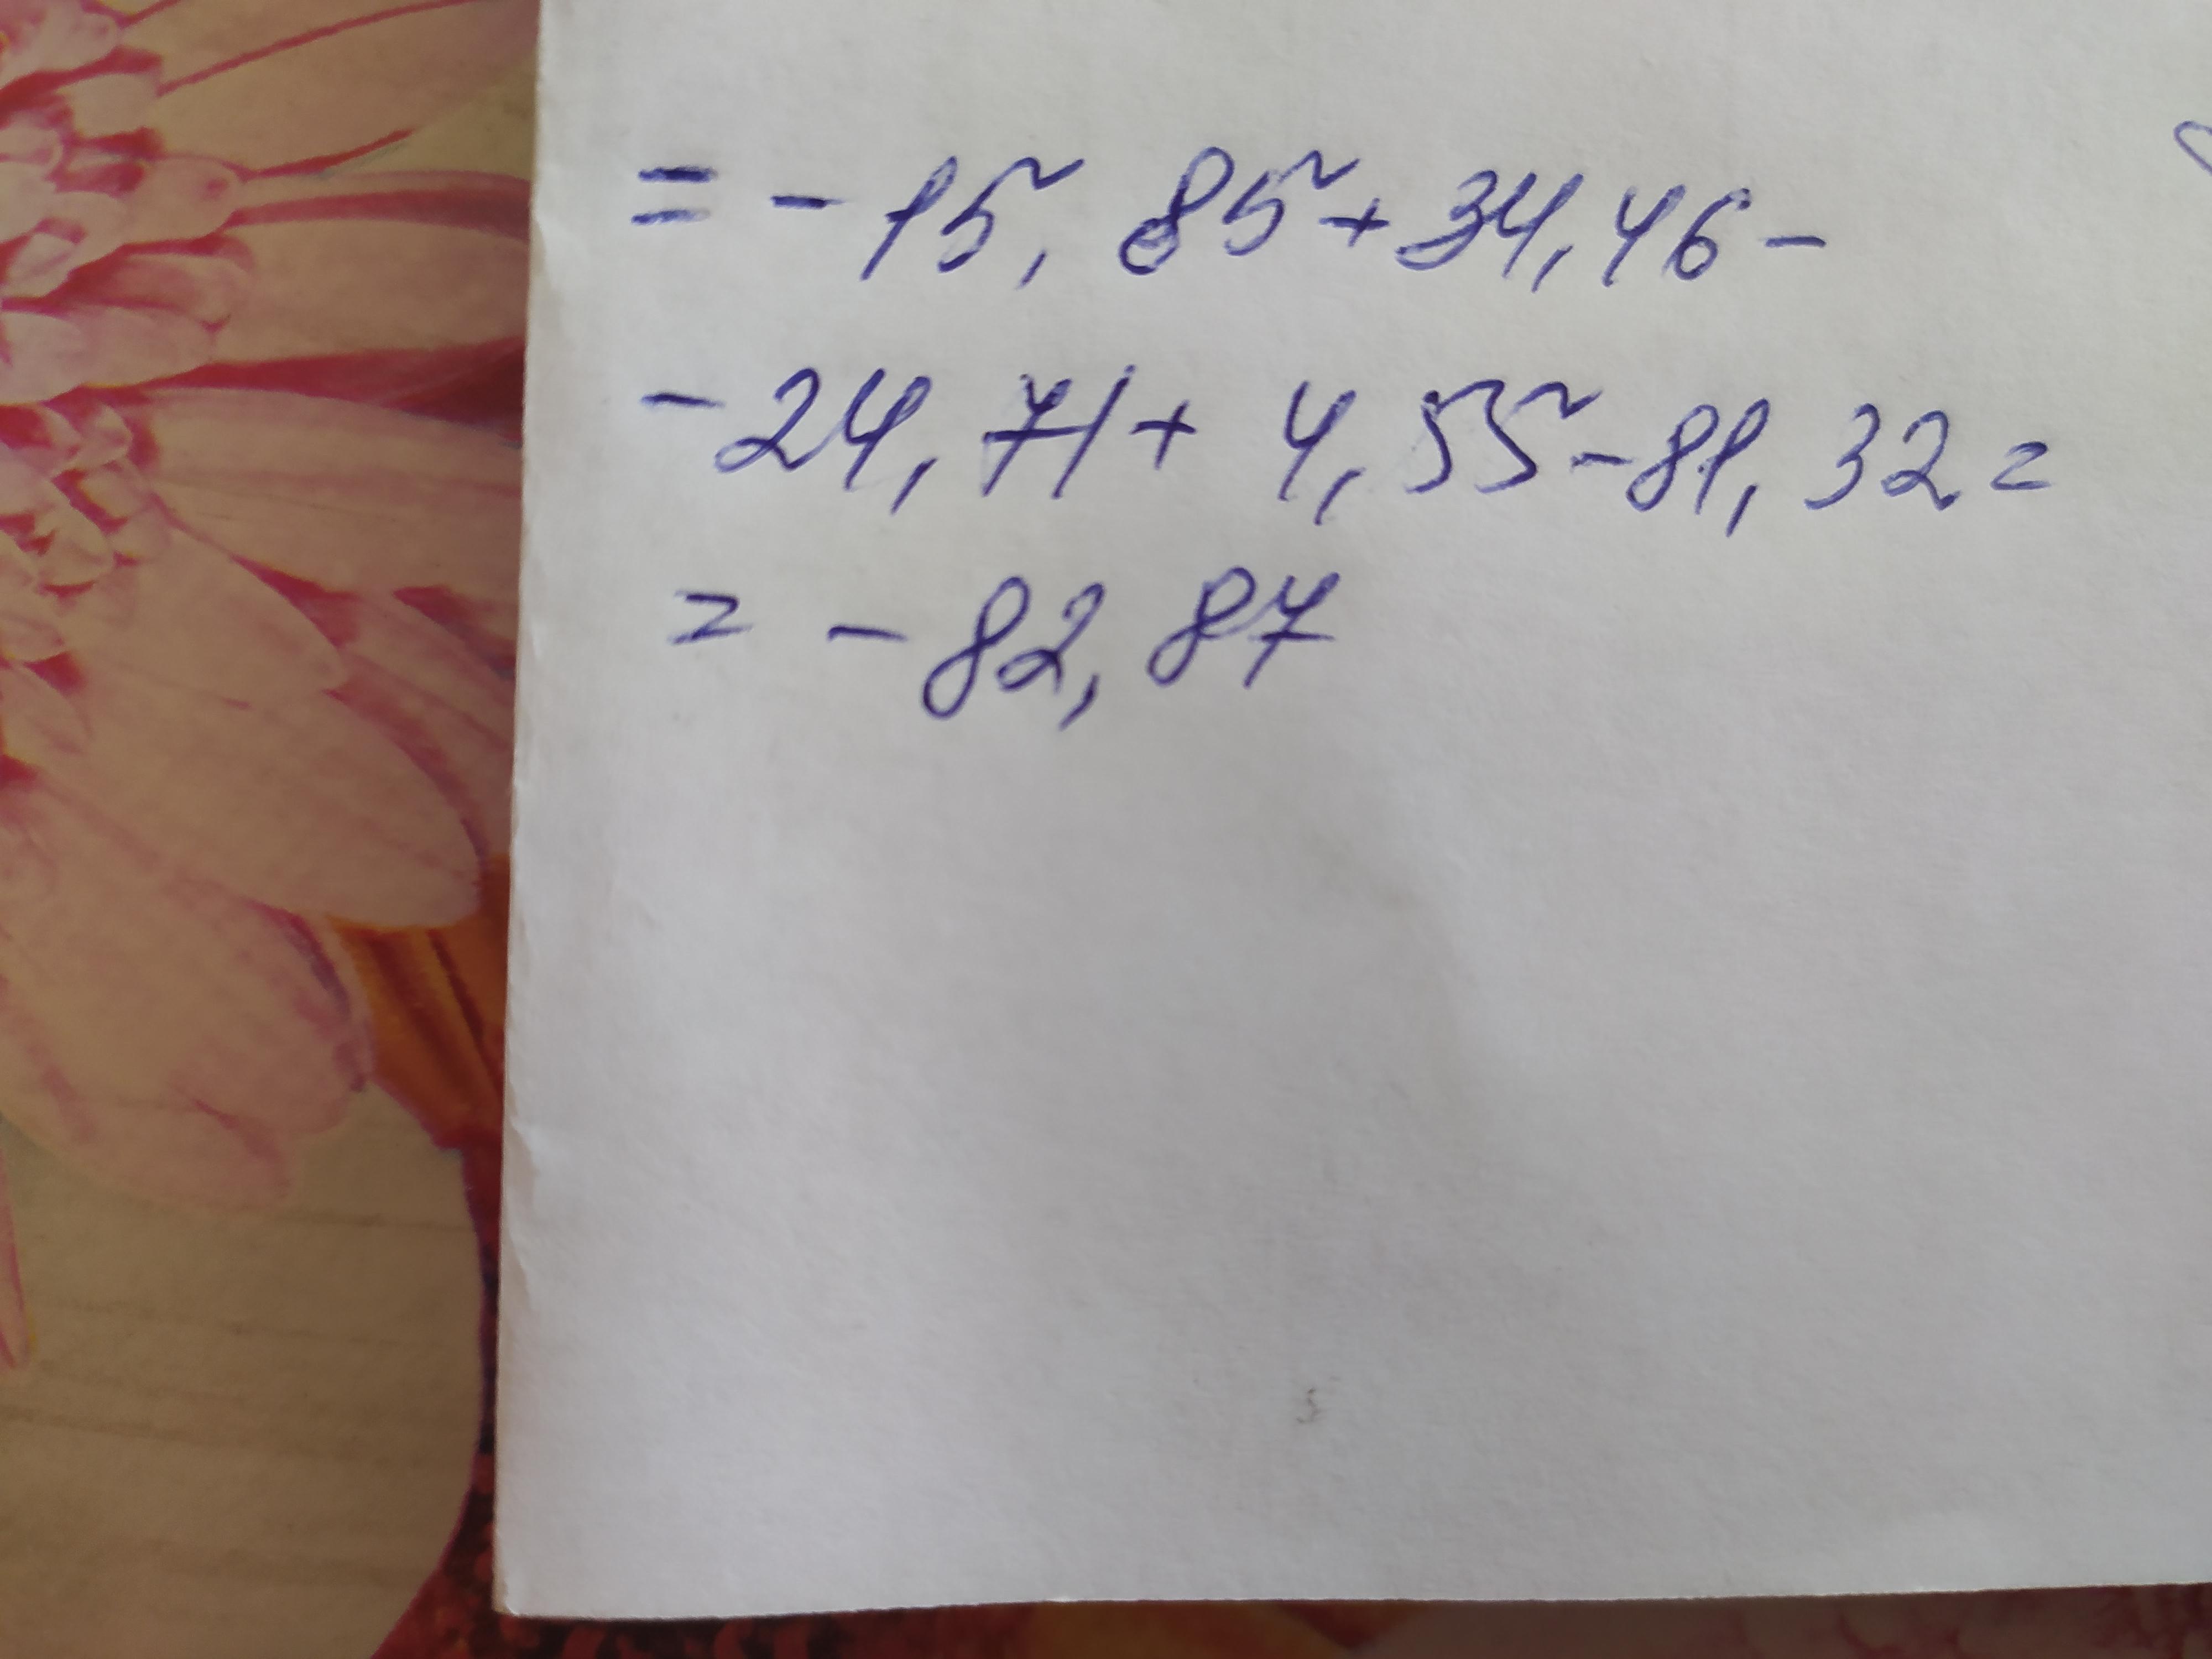 = - 15,85 + 34,46 -
- 24,71 + 4,55 - 81,32 =
= - 82,87